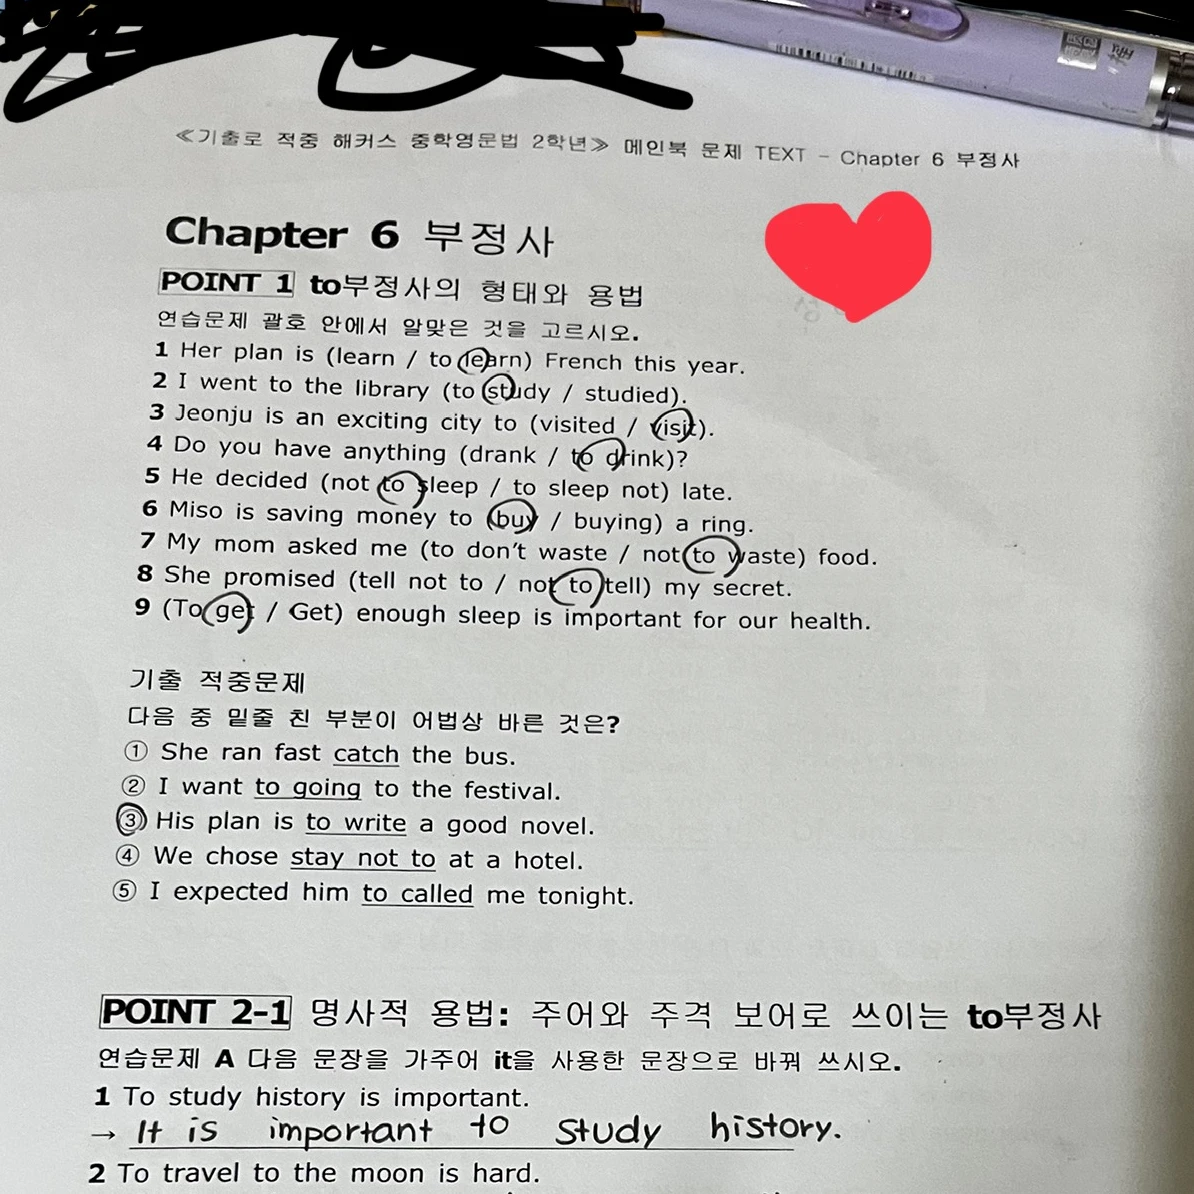 ≪기출로 적중 해커스 중학영문법 2학년≫ 메인북 문제 TEXT - Chapter 6 부정사
Chapter 6 부정사
POINT 1 to부정사의 형태와 용법
연습문제 괄호 안에서 알맞은 것을 고르시오.
1 Her plan is (learn / to learn) French this year.
2 I went to the library (to study / studied).
3 Jeonju is an exciting city to (visited / visit).
4 Do you have anything (drank / to drink)?
5 He decided (not to sleep / to sleep not) late.
6 Miso is saving money to (buy / buying) a ring.
7 My mom asked me (to don't waste / not to waste) food.
8 She promised (tell not to / not to tell) my secret.
9 (To get / Get) enough sleep is important for our health.
기출 적중문제
다음 중 밑줄 친 부분이 어법상 바른 것은?
① She ran fast catch the bus.
② I want to going to the festival.
③ His plan is to write a good novel.
④ We chose stay not to at a hotel.
⑤ I expected him to called me tonight.
POINT 2-1 명사적 용법: 주어와 주격 보어로 쓰이는 to부정사
연습문제 A 다음 문장을 가주어 it을 사용한 문장으로 바꿔 쓰시오.
1 To study history is important.
→ It is important to study history.
2 To travel to the moon is hard.